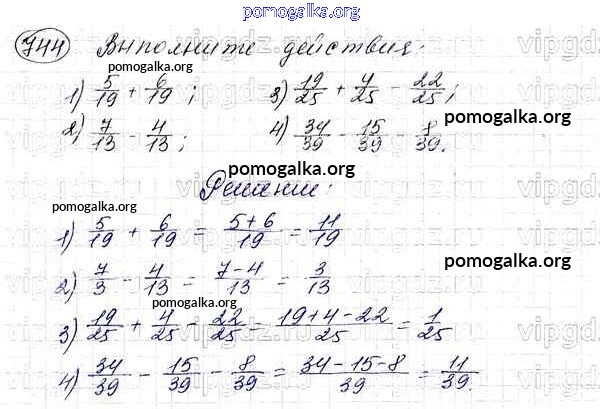 pomogalka.org
744 Выполните действия:
pomogalka.org
1) 5/19 + 6/19; 3) 19/25 + 4/25 - 22/25;
pomogalka.org
2) 7/13 - 4/13; 4) 34/39 - 15/39 - 8/39.
pomogalka.org
Решение:
pomogalka.org
1) 5/19 + 6/19 = 5+6/19 = 11/19
2) 7/3 - 4/13 = 7-4/13 = 3/13
pomogalka.org
pomogalka.org
3) 19/25 + 4/25 - 22/25 = 19+4-22/25 = 1/25
4) 34/39 - 15/39 - 8/39 = 34-15-8/39 = 11/39.